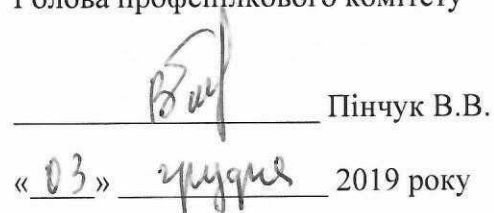 Голова профспілкового комітету
Пінчук В.В.
«03» грудня 2019 року